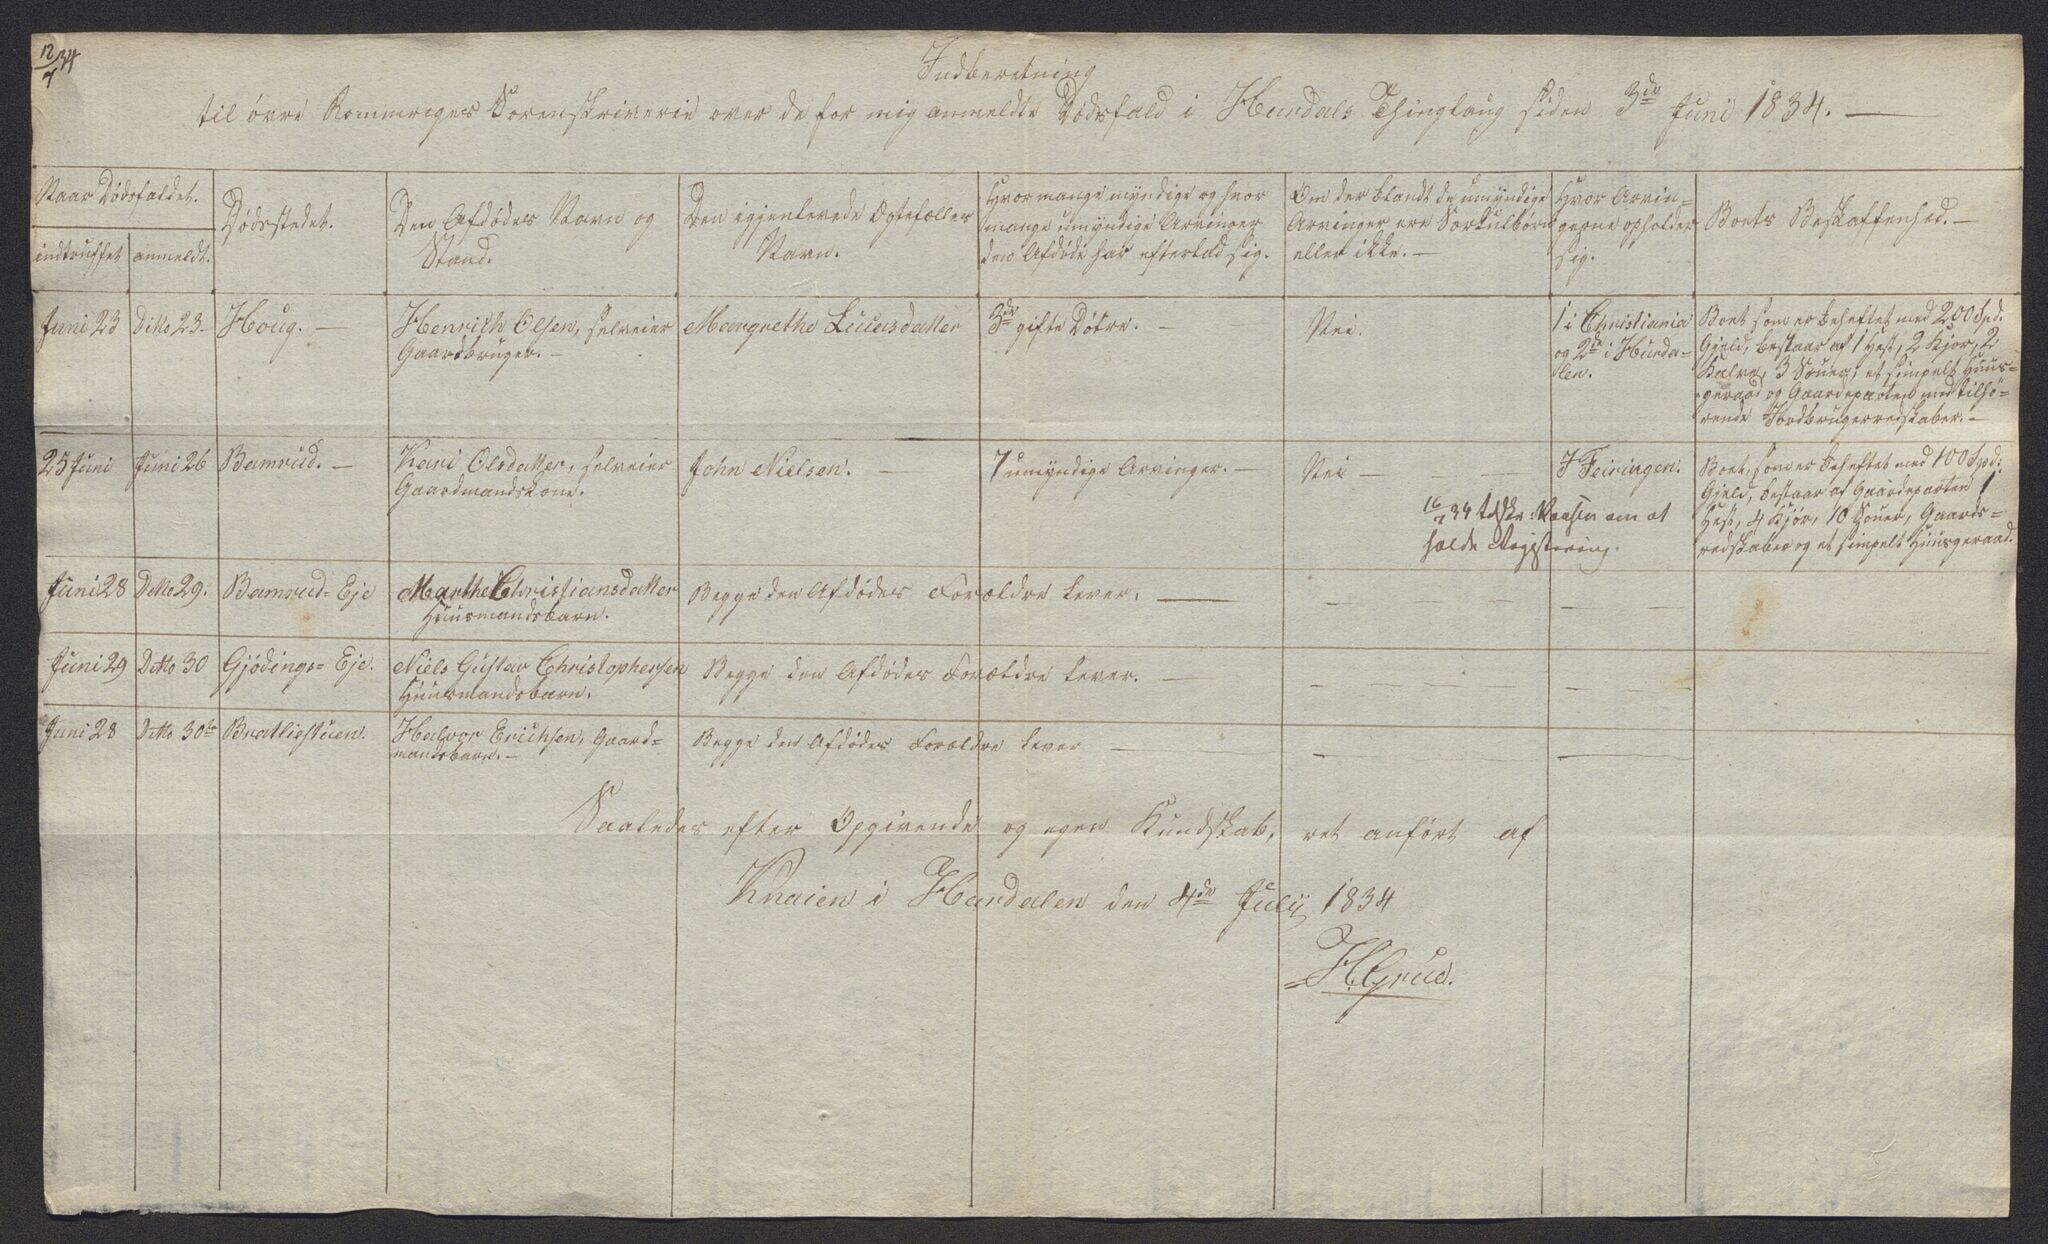 12/7 34
Indberetning
til øvre Rommeriges Sorenskriverie over de for mig anmeldte Dødsfald i Hurdals Thinglaug siden 3die Juni 1834. —
Naar Dødsfaldet.
indtruffet
anmeldt.
Dødsstedet.
Den Afdødes Navn og
Stand.
Den igjenlevede Ægtefælles
Navn.
Hvor mange myndige og hvor
mange umyndige Arvinger
den Afdøde har efterladt sig.
Om der blandt de umyndige
Arvinger ere Særkulbørn
eller ikke. —
Hvor Arvin-
gerne opholder
sig.
Boets Beskaffenhed. —
Juni 23
Ditto 23 -
Houg. —
Henrich Olsen, selveier
Gaardbruger. —
Margrethe Lucasdatter
3de gifte Døtre. —
Nei.
1 i Christiania
og 2de i Hurda-
len.
Boet som er beheftet med 200 Spd.
Gjeld, bestaar af 1 Hest, 2 Kjør, 2
Kalve, 3 Souer, et simpelt Huus-
geraad og Gaardeparten med tilhø-
rende Jordbrugerredskaber. —
25 Juni
Juni 26
Bamrud. —
Kari Olsdatter, selveier
Gaardmandskone.
John Nielsen. —
7 umyndige Arvinger. —
Nei —
I Feiringen.
Boet, som er beheftet med 100 Spd:
Gjeld, bestaar af Gaardeparten 1
Hest, 4 Kjør, 10 Souer, Gaards-
redskaber og et simpelt Huusgeraad.
16/7 34 tilskr: om at
holde Registering.
Juni 28
Ditto 29.
Bamrud-Eje
Marthe Christiansdatter
Huusmandsbarn.
Begge den Afdødes Forældre lever. —
Juni 29
Ditto 30
Gjødings-Eje.
Niels Gustav Christophersen
Huusmandsbarn.
Begge den Afdødes Forældre lever. —
Juni 28
Ditto 30te
Bratliestuen.
Halvor Erichsen, Gaard-
mandsbarn. —
Begge den Afdødes Forældre lever —
Saaledes efter Opgivende og egen Kundskab, ret anført af
Knaien i Hurdalen den 4de Julij 1834
H. Grue.